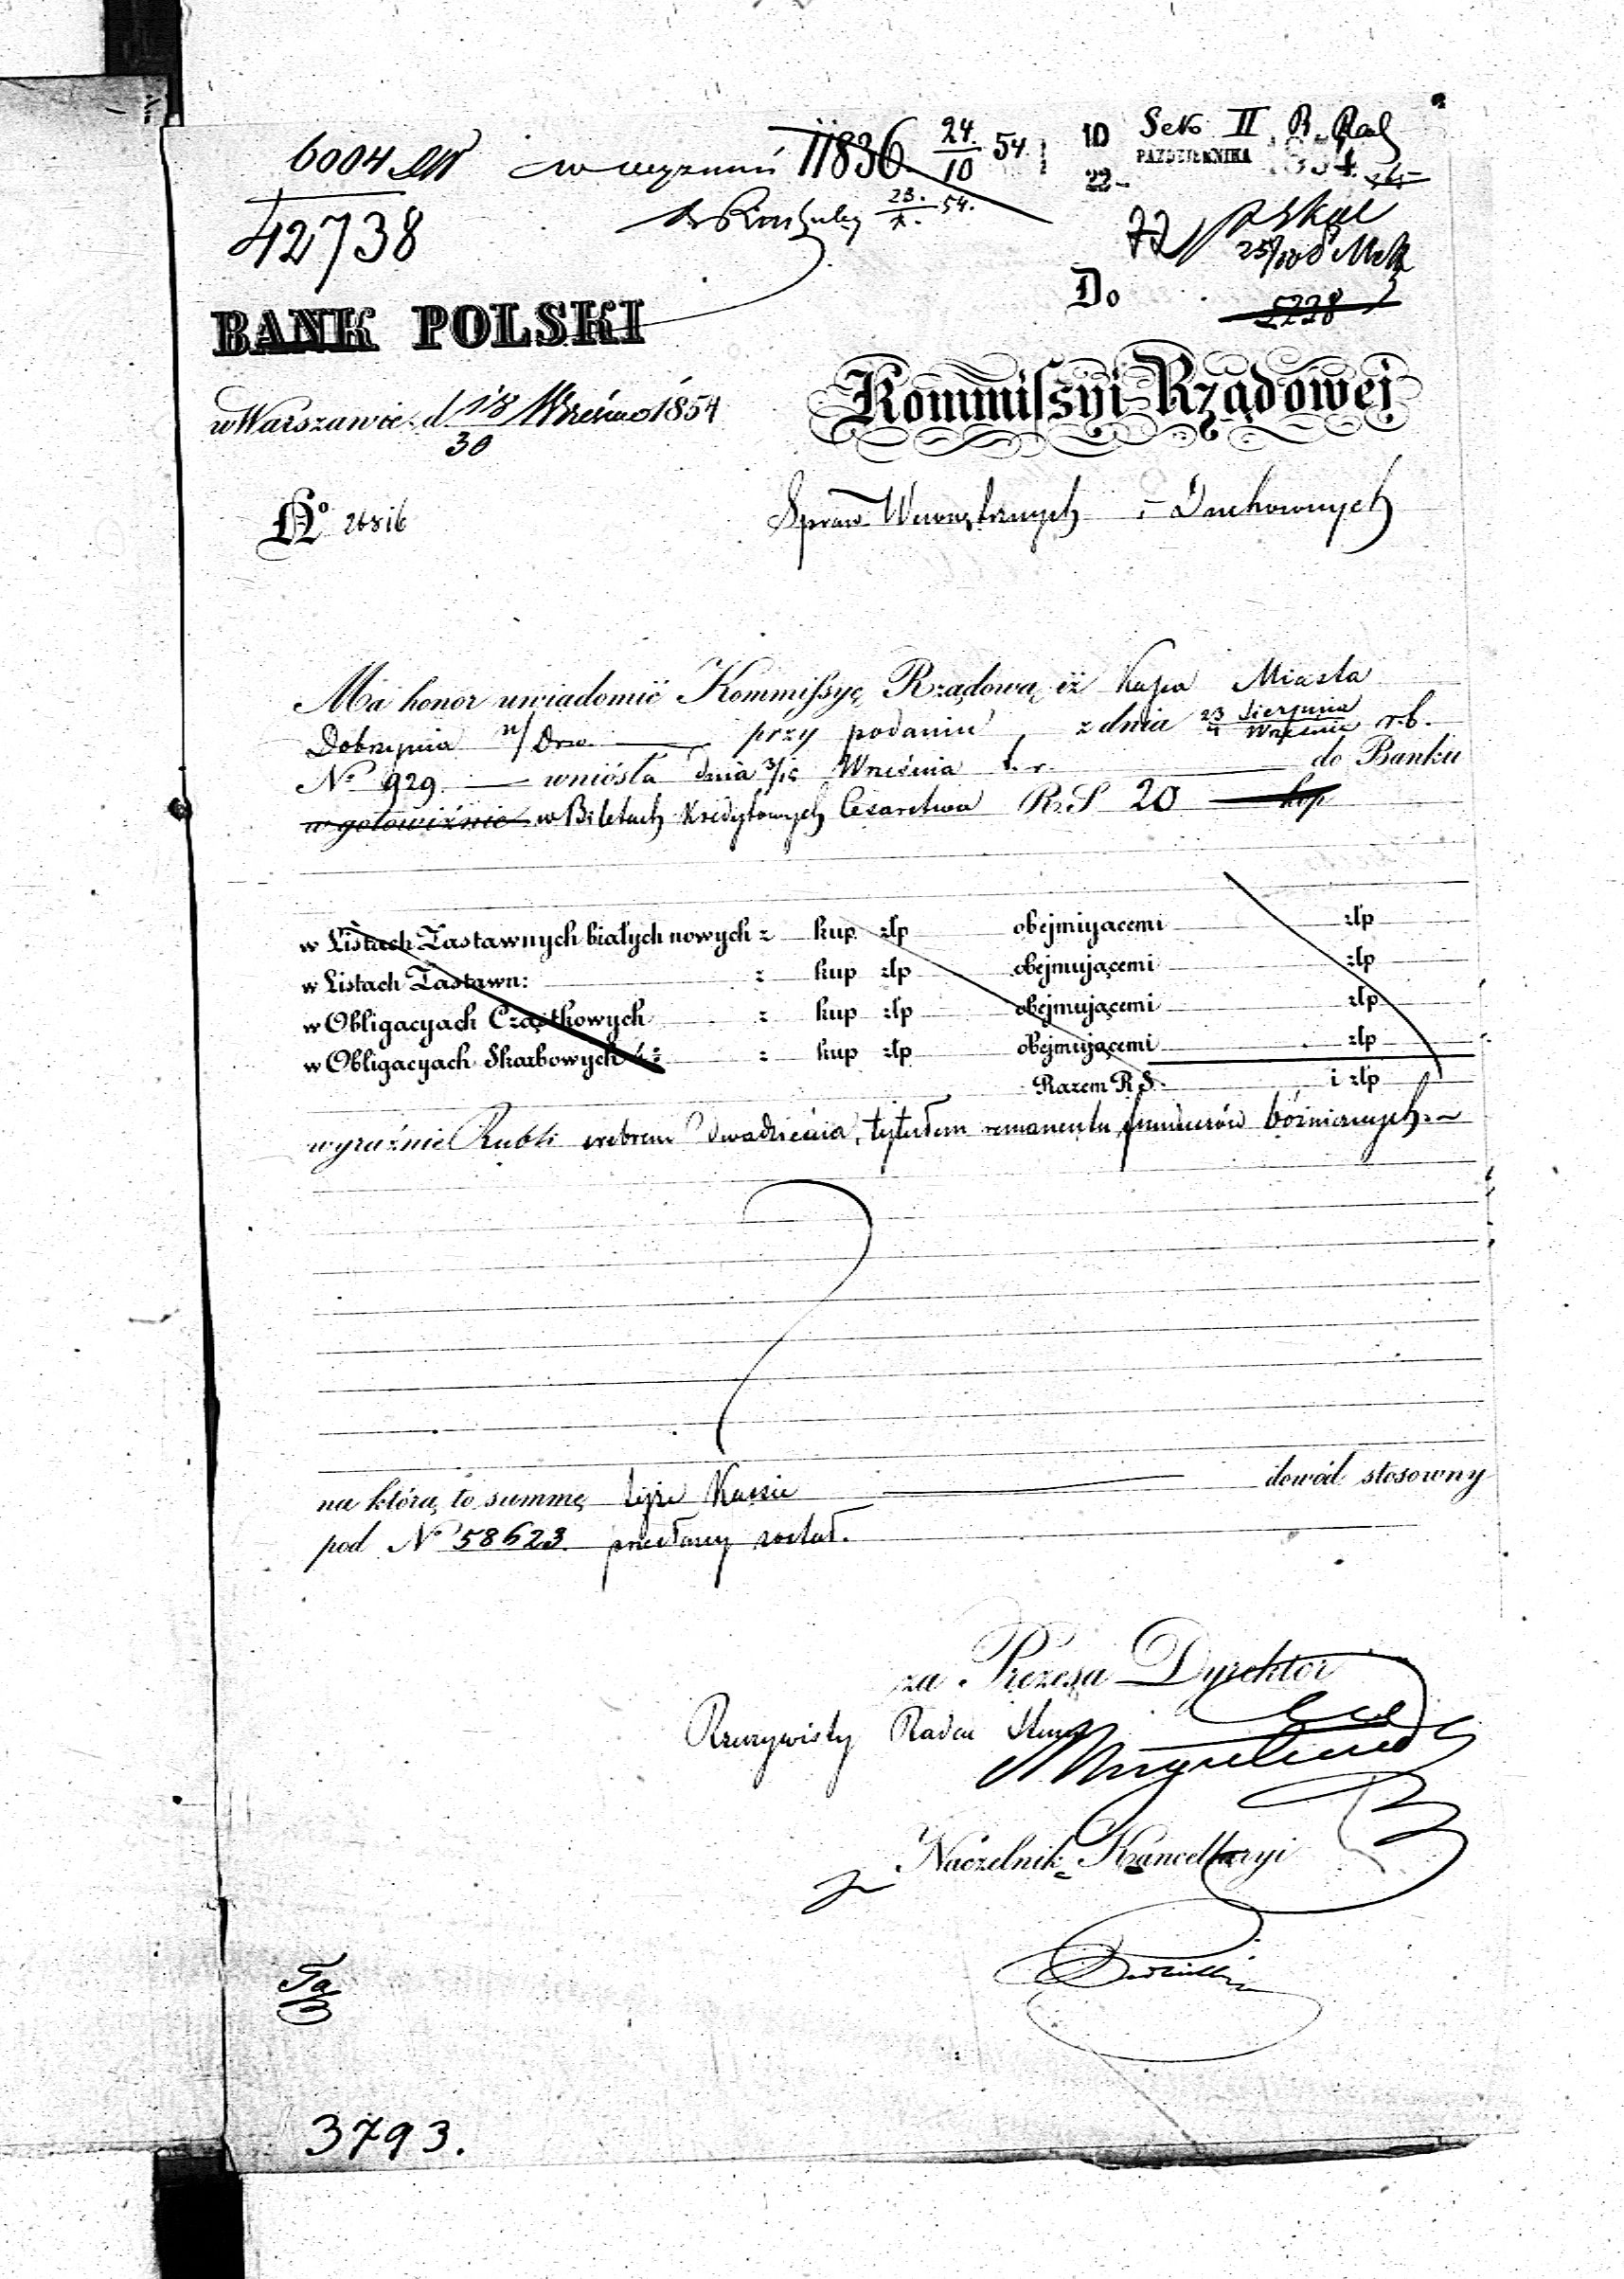 6004
42738
11836 24/10 54.
23./X. 54.
10 PAZDZIERNIKA
22
Sek II
BANK POLSKI
w Warszawie d 18/30 Września 1854
No 26816
Do
5228
Kommissyi Rządowej
Spraw Wewnętrznych i Duchownych
Ma honor uwiadomić Kommissyę Rządową iż Kassa Miasta
Dobrzynia n/ Drw. przy podaniu z dnia 23 Sierpnia/4 Września r.b.
No 929. wniosła dnia 3/15 Września b. r. do Banku
w gotowiźnie w Biletach Kredytowych Cesarstwa R.S 20 kop
w Listach Zastawnych białych nowych z kup złp obejmującemi złp
w Listach Zastawn: z kup złp obejmującemi złp
w Obligacyach Cząstkowych z kup złp obejmującemi złp
w Obligacyach Skarbowych z kup złp obejmującemi złp
Razem R S. i złp
wyraźnie Rubli srebrem dwadzieścia, tytułem remanentu funduszów bóżniczych.
na którą to summę tejże Kassie dowód stosowny
pod No 58623 przesłany został.
za Prezesa Dyrektor
Rzeczywisty Radca Stanu
Naczelnik Kancellaryi
3793.